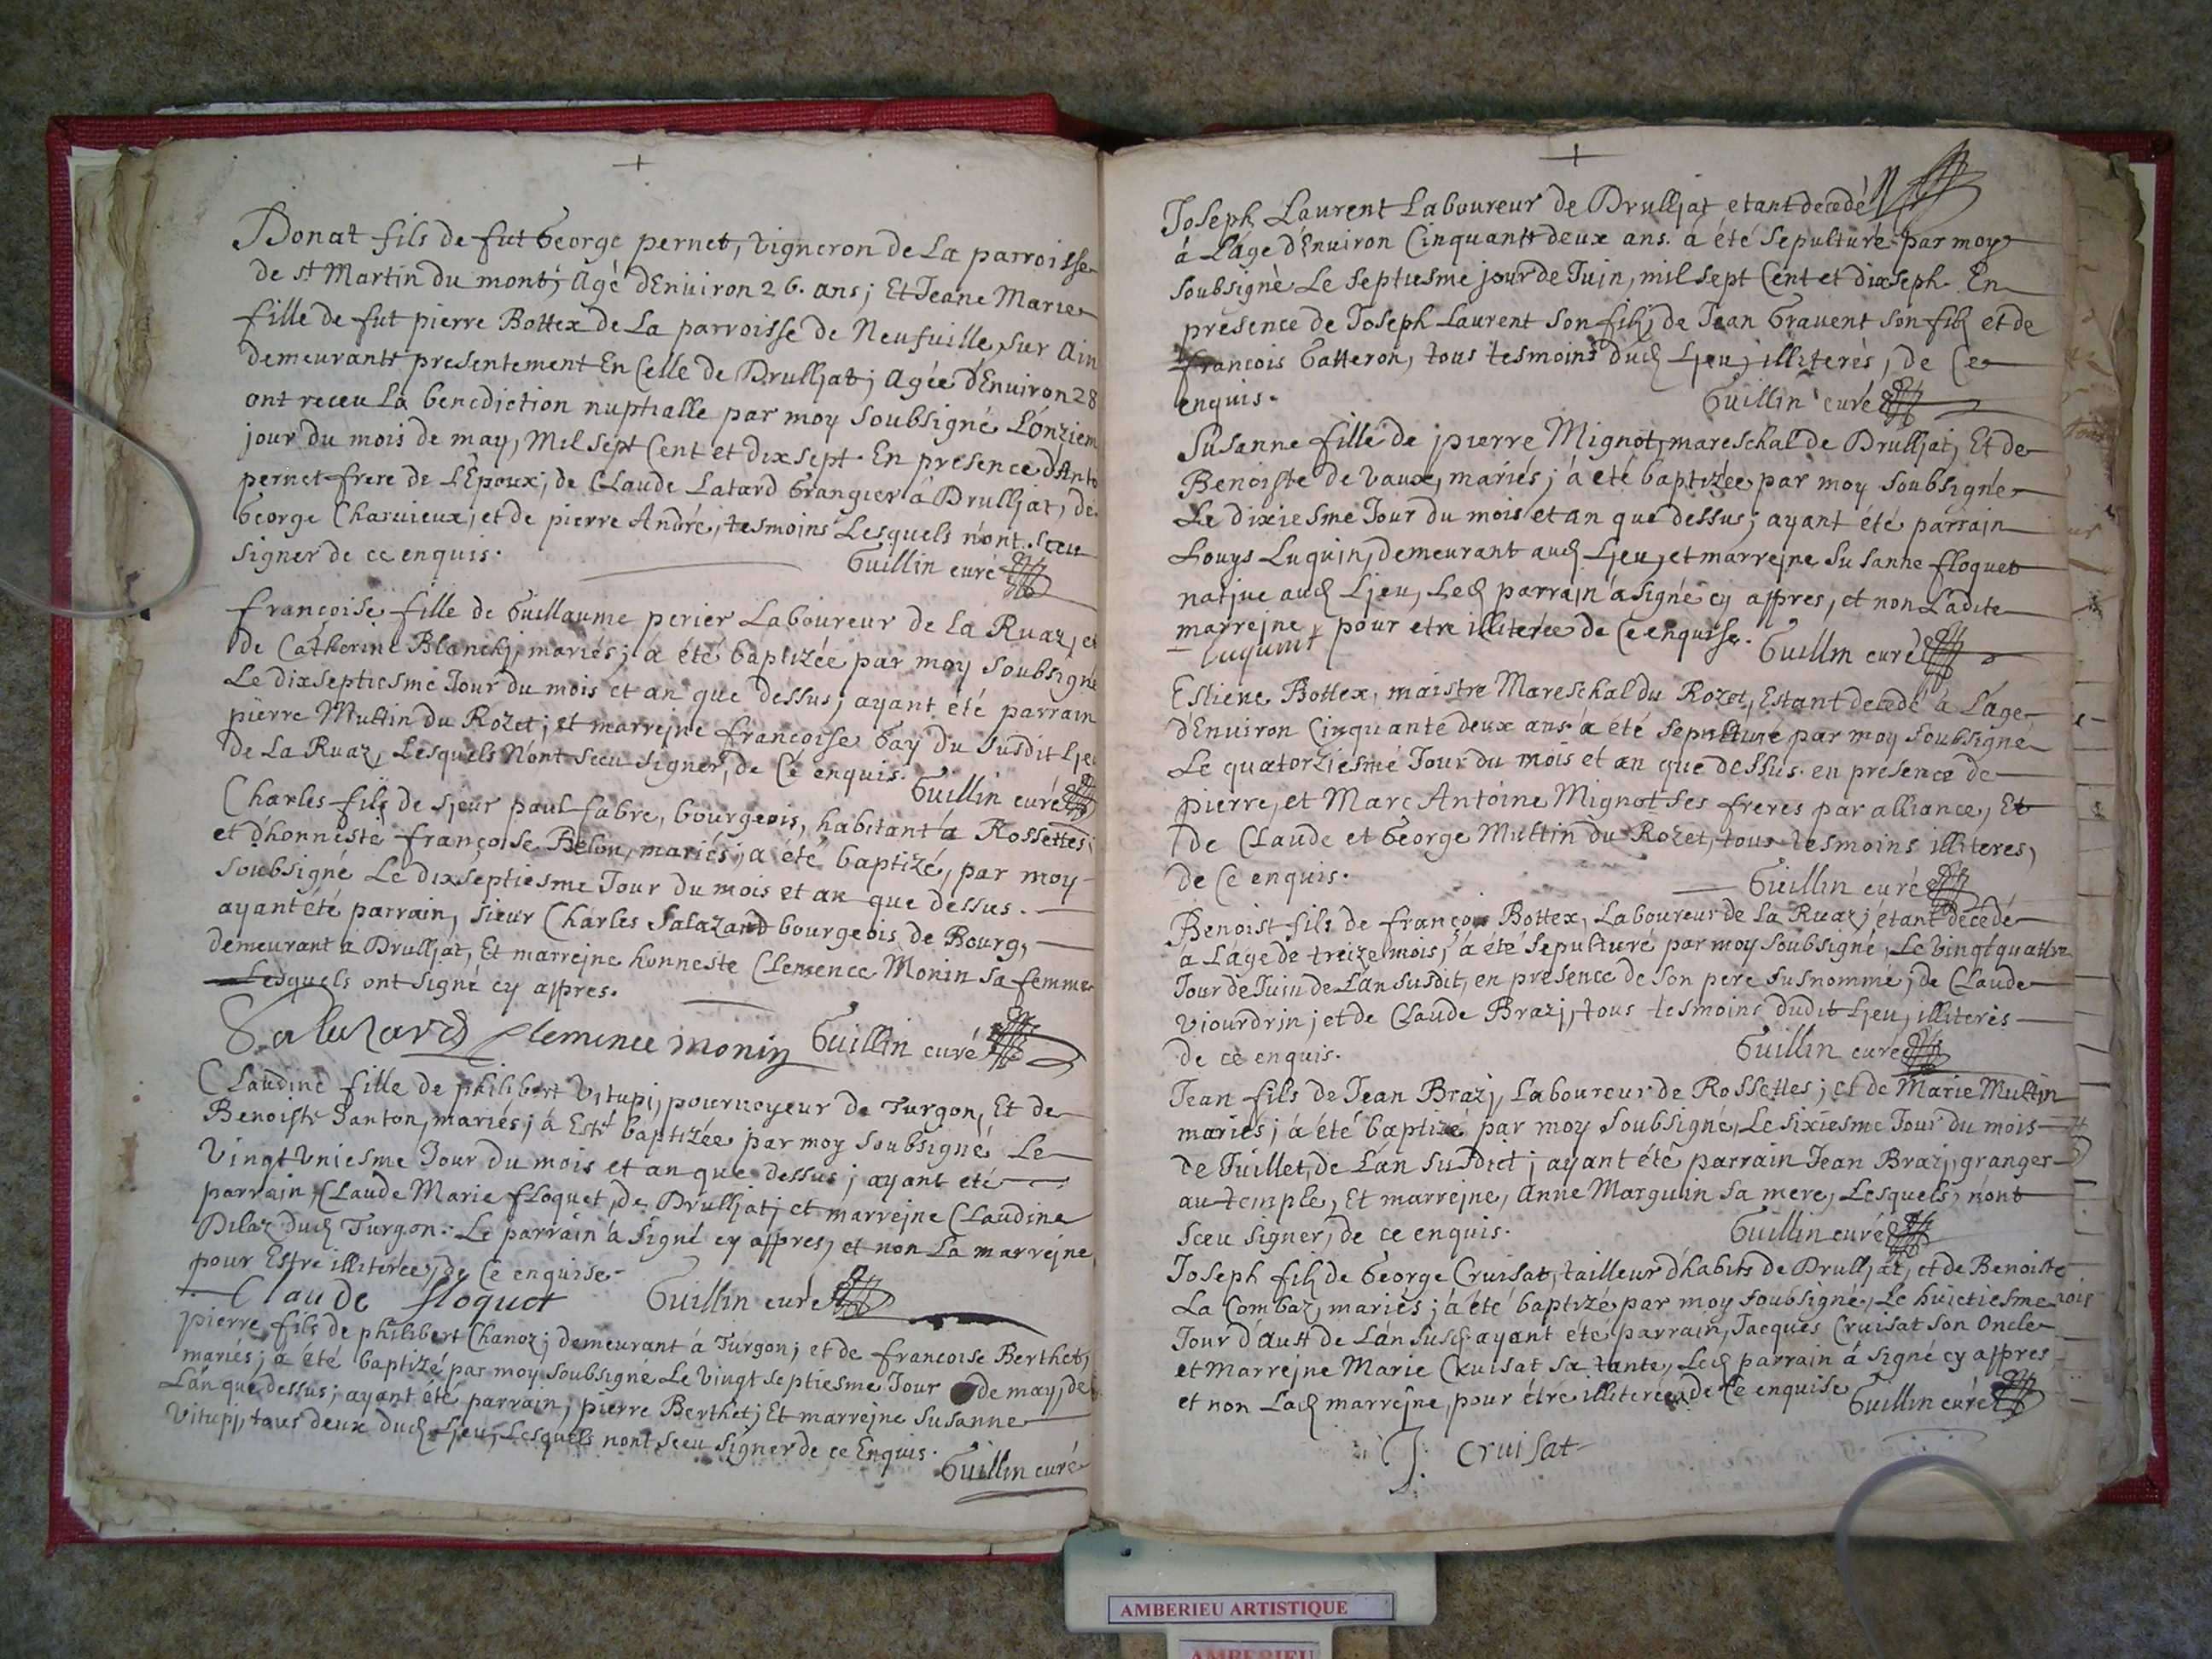 Donat fils de fut George pernet, vigneron de La parroisse
de st Martin du mont; Agé d'Enuiron 26. ans; Et Jeane Marie
fille de fut pierre Bottex de La parroisse de Neufuille sur Ain
demeurante presentement En Celle de Drulljat; Agée d'Enuiron 28
ont receu La benediction nuptialle par moy Soubsigné L'onziem
jour du mois de may, Mil sept Cent et dix sept. En presence d'Anto
pernet frere de L'Epoux, de Claude Latard Grangier à Drulljat, de
George Charuieux, et de pierre André, tesmoins Lesquels n'ont sceu
signer de ce enquis.
Guillin curé
françoise fille de Guillaume perier Laboureur de La Ruaz, et
de Catherine Blanchj, mariés; a été baptizée par moy soubsigné
Le dixseptiesme Jour du mois et an que dessus; ayant été parrain
pierre Muttin du Rozet; et marrejne françoise Gay du susdit Ljeu
de La Ruaz, Lesquels Nont sceu signer, de Ce enquis. Guillin curé
Charles fils de sjeur paul fabre, bourgeois, habitant à Rossettes;
et d'honneste françoise Belon, mariés; a été baptizé, par moy
soubsigné Le dixseptiesme Jour du mois et an que dessus.
ayant été parrain, sieur Charles Salazard bourgeois de Bourg,
demeurant à Drulljat, Et marrejne honneste Clemence Monin sa femme
Lesquels ont signé cy appres.
Salazard clemence monin Guillin curé
Claudine fille de philibert Vitupj, pouruoyeur de Turgon, Et de
Benoiste Janton, mariés; à Esté baptizée par moy soubsigné Le
Vingt Vniesme Jour du mois et an que dessus; ayant eté
parrain, Claude Marie floquet, de Drulljat; et marrejne Claudine
Pelaz dud Turgon. Le parrain à signé cy appres, et non La marrejne
pour Estre illiterée, de Ce enquise.
Claude floquet Guillin curé
pierre fils de philibert Chanoz; demeurant à Turgon; et de francoise Berthet;
mariés; a été baptizé par moy soubsigné Le Vingt septiesme Jour de may, de
L'an que dessus; ayant été parrain; pierre Berthet; Et marrejne susanne
Vitupj, tous deux dud Ljeu, Lesquels n'ont sceu signer de ce Enquis.
Guillin curé
Joseph Laurent Laboureur de Drulljat etant decedé
à L'age d'Enuiron Cinquante deux ans. a été sepulturé par moy
soubsigné Le septiesme jour de Juin, mil sept Cent et dix seph. En
presence de Joseph Laurent son fils, de Jean Grauent son fils et de
francois Gatteron, tous tesmoins dud Ljeu, illiterès, de Ce
enquis.
Guillin curé
Susanne fille de pierre Mignot, mareschal de Drulljat, Et de
Benoiste de Vaux, mariés; à eté baptizée par moy soubsigné
Le dixiesme Jour du mois et an que dessus; ayant été parrain
Louys Luquin, demeurant aud Ljeu, et marrejne Susanne floquet
natiue aud Ljeu, Led parrain à signé cy appres, et non Ladite
marrejne, pour etre illiterée de Ce enquise.
Luquin Guillin curé
Estiene Bottex, maistre Mareschal du Rozet, Estant decedé à L'age
d'Enuiron Cinquante deux ans a été sepulturé par moy soubsigné
Le quatorziesme Jour du mois et an que dessus. en présence de
pierre, et Marc Antoine Mignot ses freres par alliance, Et
de Claude et George Muttin du Rozet, tous tesmoins illiteres,
de Ce enquis.
Guillin curé
Benoist fils de françois Bottex, Laboureur de La Ruaz; étant decedé
à L'age de treize mois; a été sepulturé par moy soubsigné, Le Vingt quattre
Jour de Juin de L'an susdit, en presence de son pere susnommé; de Claude
Viourdrin; et de Claude Brazj, tous tesmoins dudit Ljeu, illiterès
de ce enquis.
Guillin curé
Jean fils de Jean Brazj, Laboureur de Rossettes; et de Marie Muttin
mariés; à été baptizé par moy soubsigné, Le sixiesme Jour du mois
de Juillet, de L'an susdict; ayant été parrain Jean Brazj, granger
au temple, Et marrejne, Anne Marguin sa mere, Lesquels, n'ont
sceu signer, de ce enquis.
Guillin curé
Joseph fils de George Cruisat, tailleur d'habits de Drulljat, et de Benoiste
La Combaz, mariés; à été baptizé par moy soubsigné, Le huictiesme
Jour d'Aust de L'an susd. ayant été parrain, Jacques Cruisat son Oncle
et Marrejne Marie Cruisat sa tante, Led parrain à signé cy appres
et non Lad marrejne, pour étre illiterée, de Ce enquise Guillin curé
J. Cruisat
AMBERIEU ARTISTIQUE
AMBERIEU